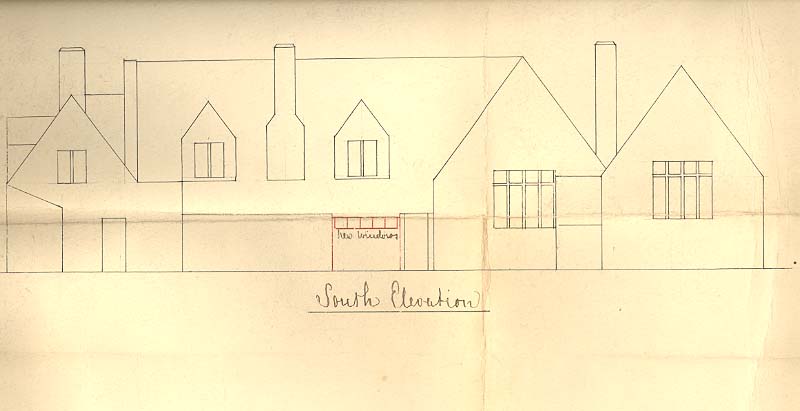 New Windows
South Elevation